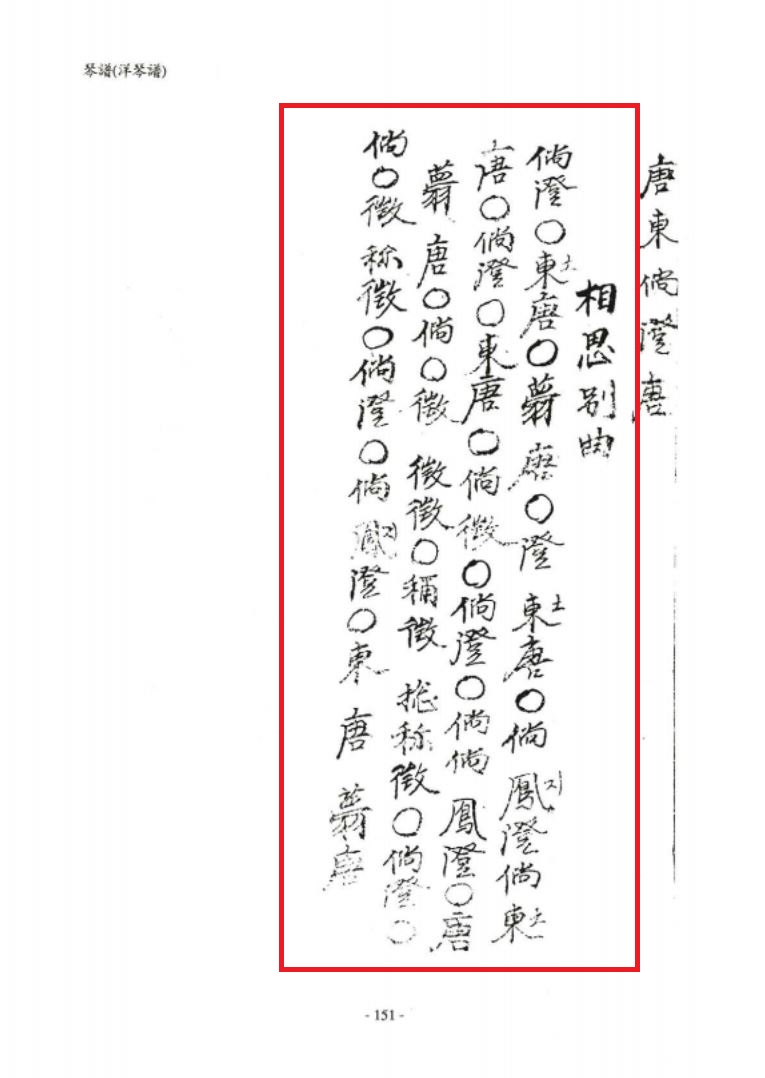 琴譜(洋琴譜)
唐東倘澄唐
相思別曲
倘澄○東土唐○蒭唐○澄東土唐○倘鳳지澄倘東土
唐○倘澄○東唐○倘徵○倘澄○倘倘鳳澄○唐
蒭唐○倘○徵徵徵○稱徵㧾称徵○倘澄○
倘○徵称徵○倘澄○倘鳳지澄○東唐蒭唐
- 151 -